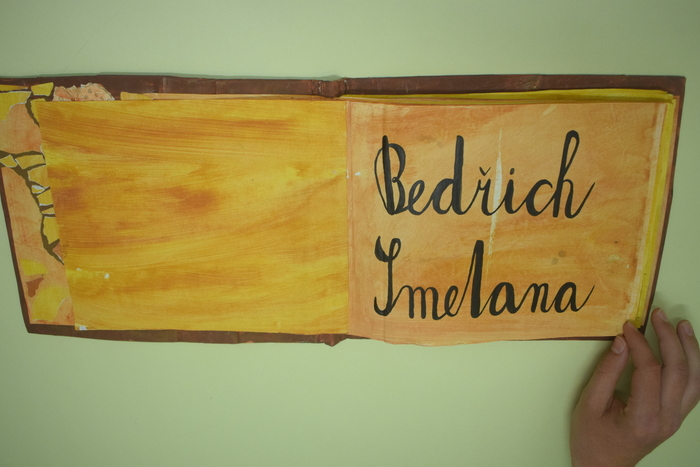 Bedřich
Smetana